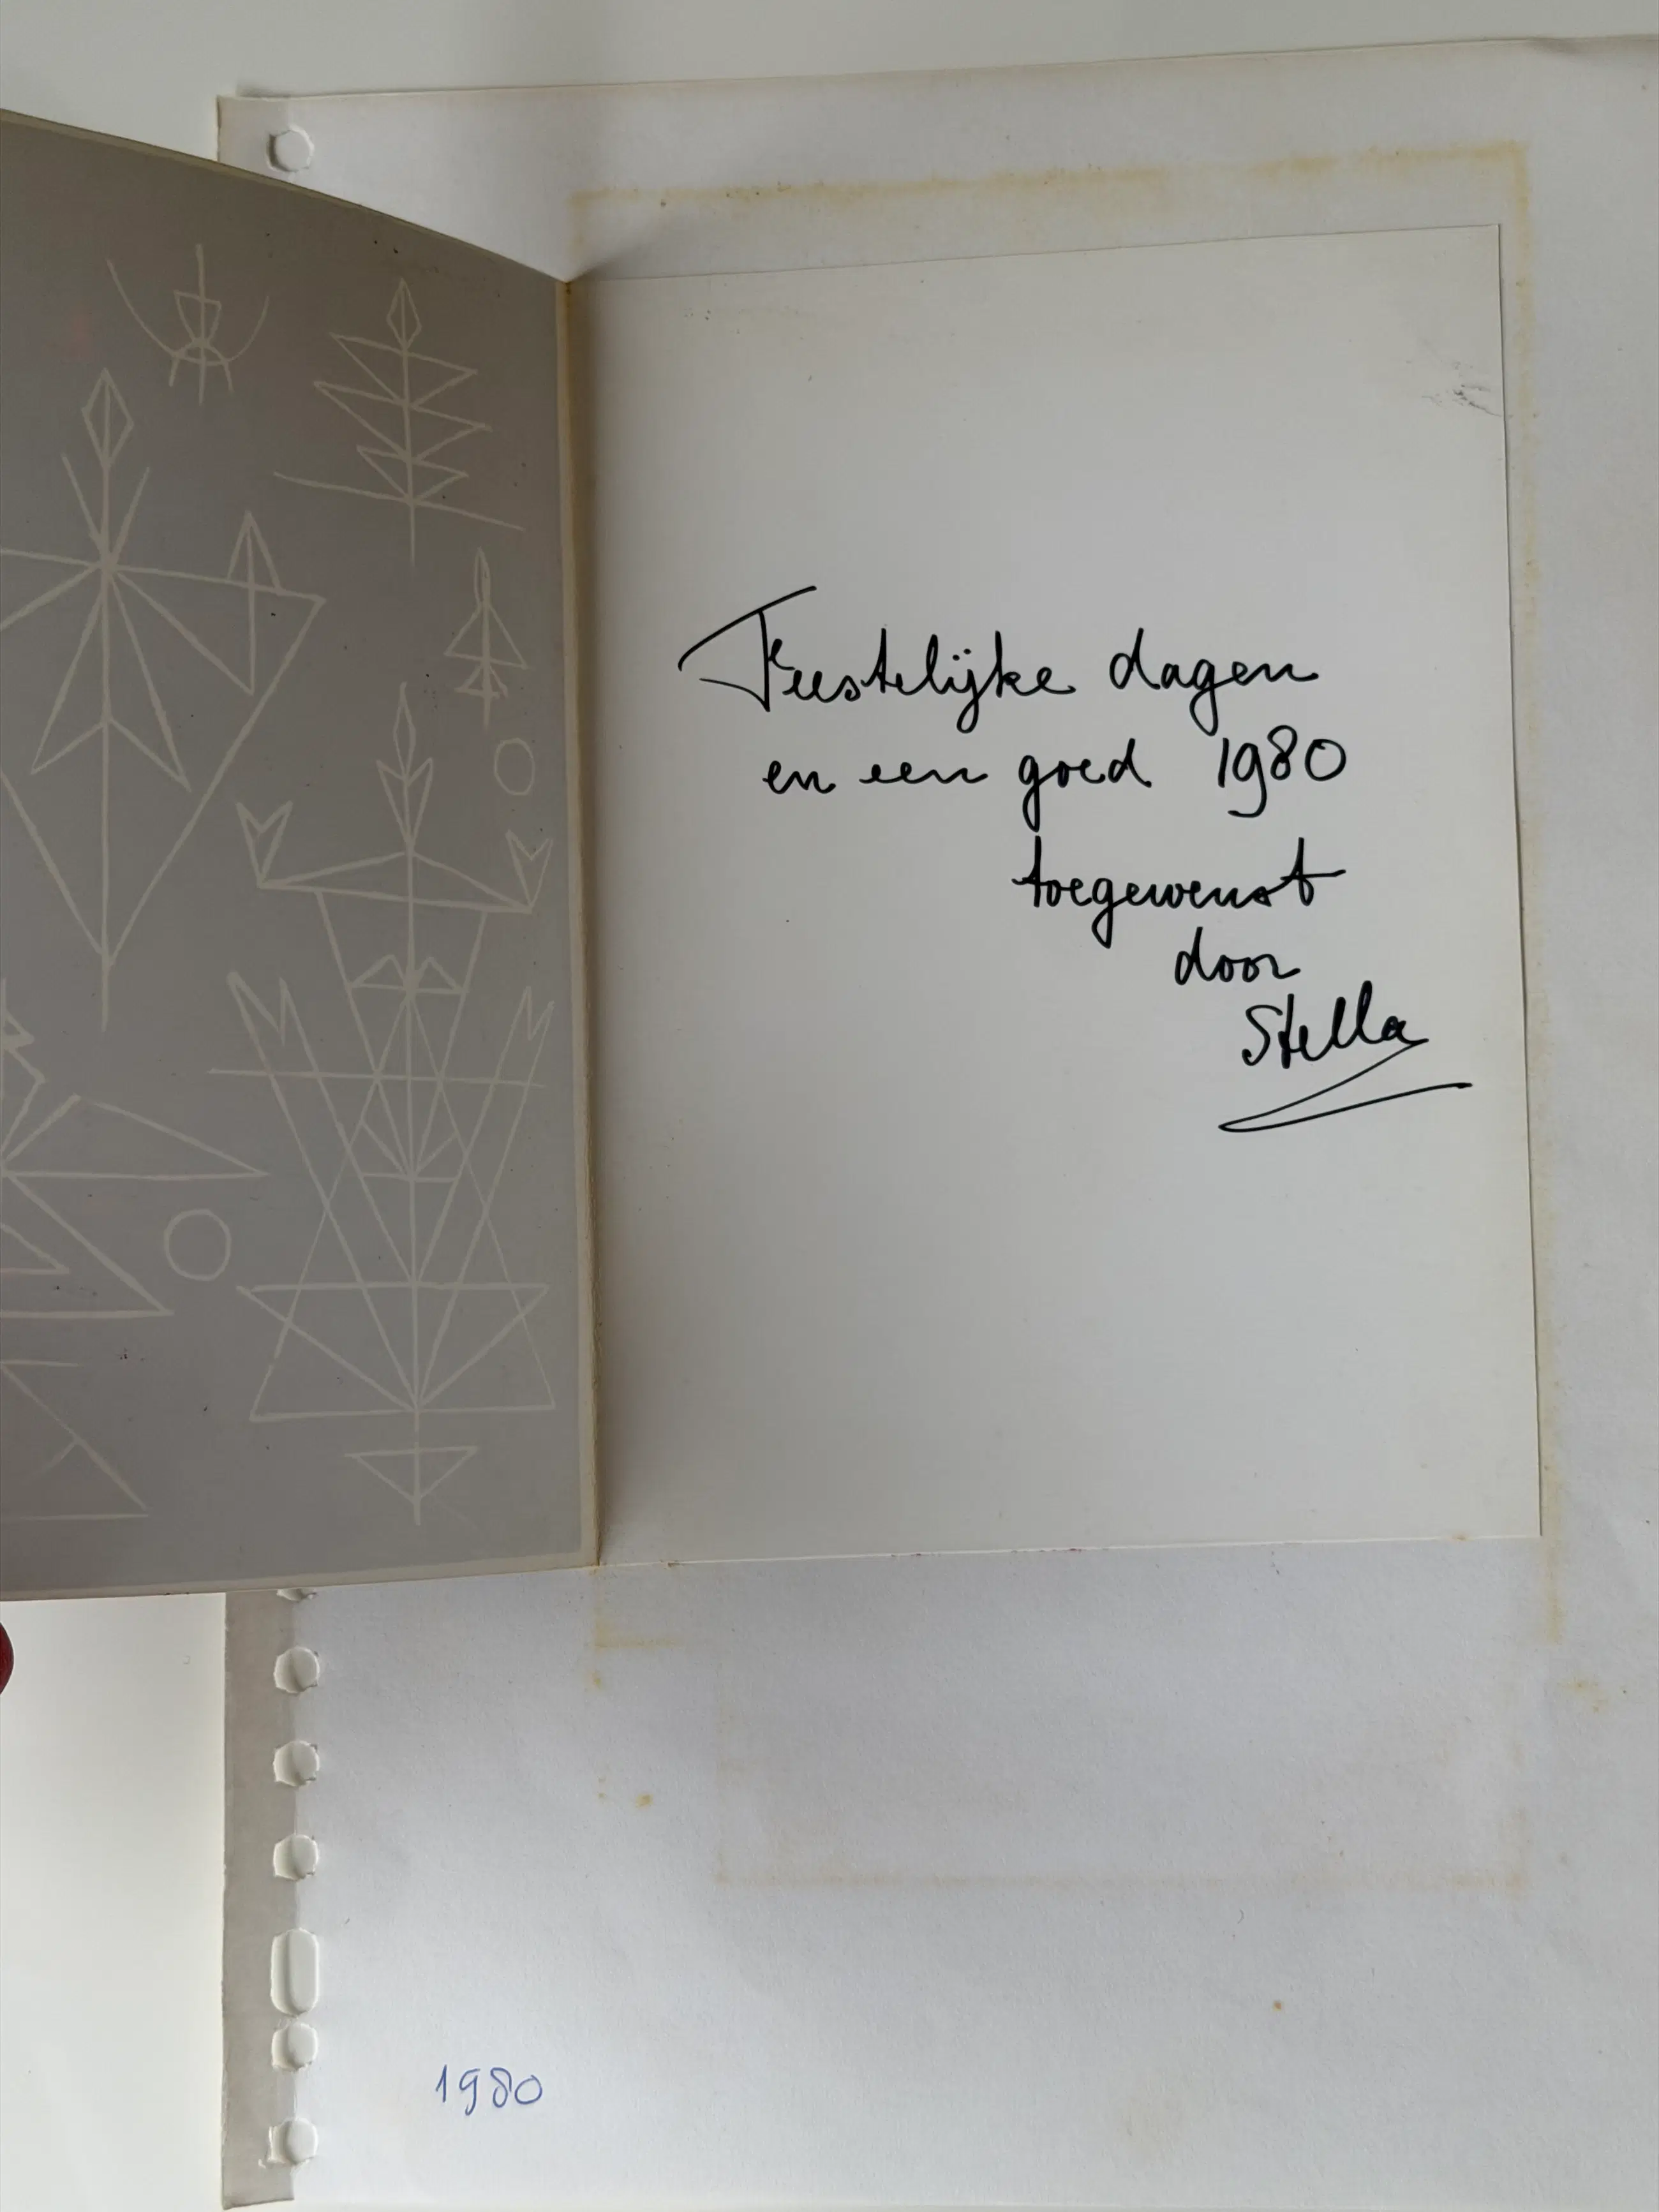 Feestelijke dagen
en een goed 1980
toegewenst
door
Stella
1980